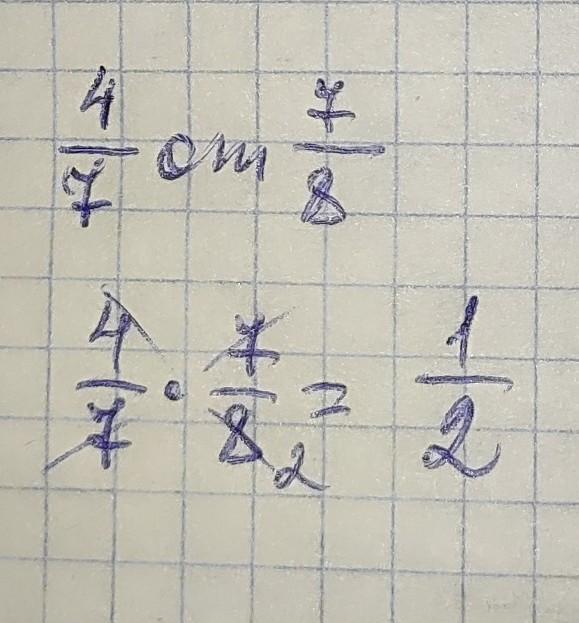 4/7 от 7/8
4/7 · 7/8 2 = 1/2